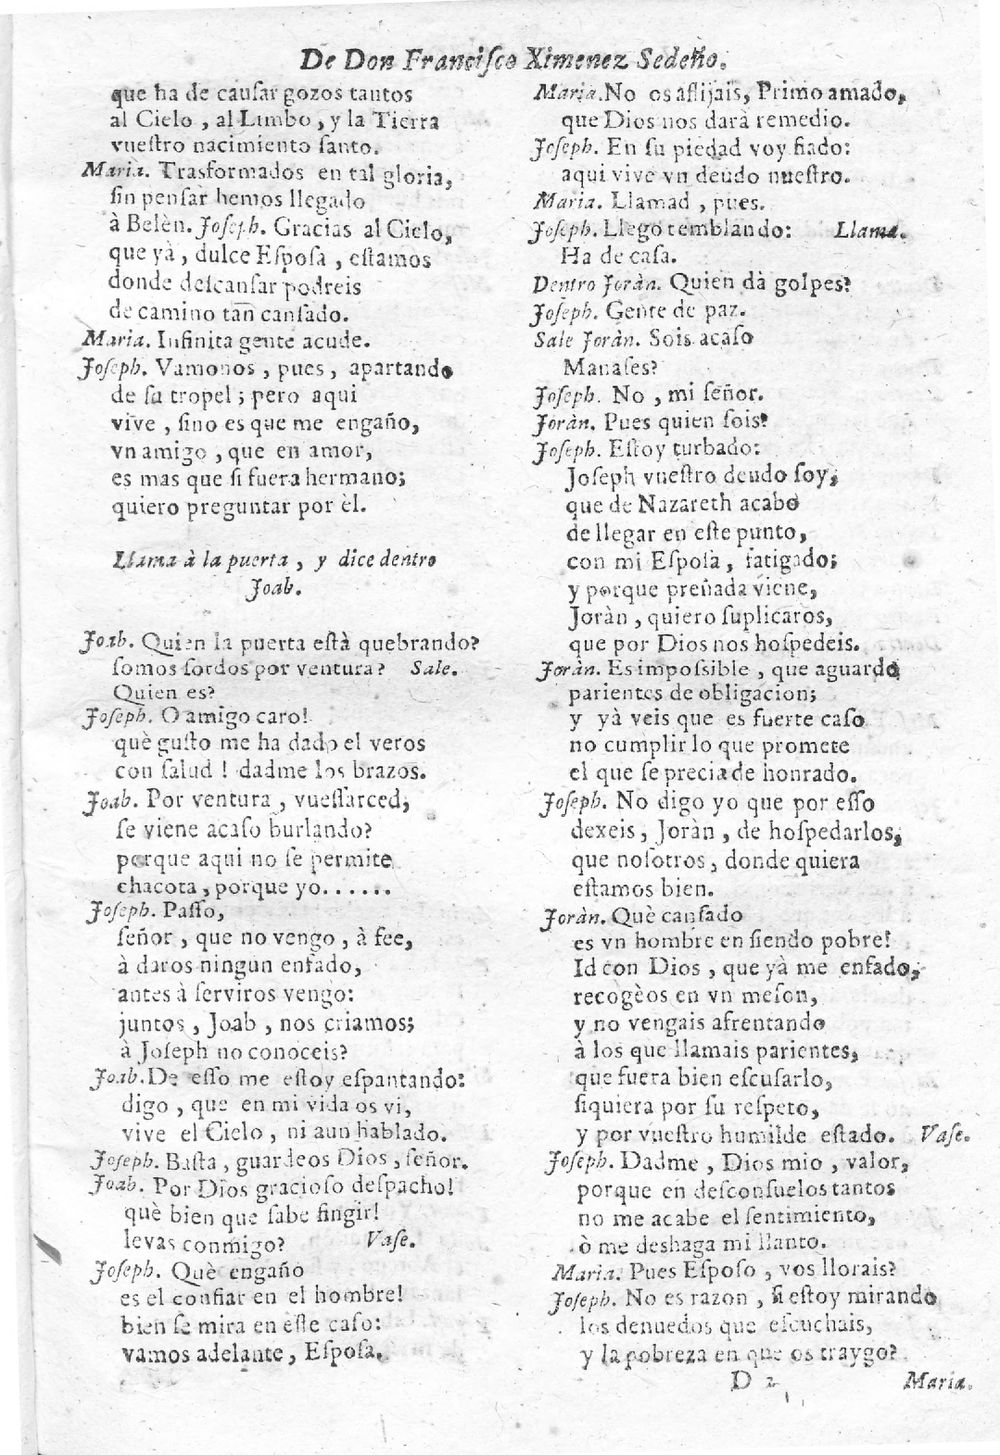 De Don Francisco Ximenez Sedeño.
que ha de causar gozos tantos
al Cielo, al Limbo, y la Tierra
vuestro nacimiento santo.
Maria. Trasformados en tal gloria,
sin pensar hemos llegado
à Belèn. Joseph. Gracias al Cielo,
que yà, dulce Esposa, estamos
donde descansar podreis
de camino tan cansado.
Maria. Infinita gente acude.
Joseph. Vamonos, pues, apartando
de su tropel; pero aqui
vive, sino es que me engaño,
vn amigo, que en amor,
es mas que si fuera hermano;
quiero preguntar por èl.
Llama à la puerta, y dice dentro
Joab.
Joab. Quien la puerta està quebrando?
somos sordos por ventura? Sale.
Quien es?
Joseph. O amigo caro!
què gusto me ha dado el veros
con salud! dadme los brazos.
Joab. Por ventura, vuessarced,
se viene acaso burlando?
porque aqui no se permite
chacota, porque yo......
Joseph. Passo,
señor, que no vengo, à fee,
à daros ningun enfado,
antes à serviros vengo:
juntos, Joab, nos criamos;
à Joseph no conoceis?
Joab. De esso me estoy espantando:
digo, que en mi vida os vi,
vive el Cielo, ni aun hablado.
Joseph. Basta, guardeos Dios, señor.
Joab. Por Dios gracioso despacho!
què bien que sabe fingir!
levas conmigo? Vase.
Joseph. Què engaño
es el confiar en el hombre!
bien se mira en este caso:
vamos adelante, Esposa.
Maria. No os aflijais, Primo amado,
que Dios nos darà remedio.
Joseph. En su piedad voy fiado:
aqui vive vn deudo nuestro.
Maria. Llamad, pues.
Joseph. Llego temblando: Llama.
Ha de casa.
Dentro Joràn. Quien dà golpes?
Joseph. Gente de paz.
Sale Joràn. Sois acaso
Manases?
Joseph. No, mi señor.
Joràn. Pues quien sois?
Joseph. Estoy turbado:
Joseph vuestro deudo soy,
que de Nazareth acabo
de llegar en este punto,
con mi Esposa, fatigado;
y porque preñada viene,
Joràn, quiero suplicaros,
que por Dios nos hospedeis.
Joràn. Es impossible, que aguardo
parientes de obligacion;
y yà veis que es fuerte caso
no cumplir lo que promete
el que se precia de honrado.
Joseph. No digo yo que por esso
dexeis, Joràn, de hospedarlos,
que nosotros, donde quiera
estamos bien.
Joràn. Què cansado
es vn hombre en siendo pobre!
Id con Dios, que yà me enfado,
recogèos en vn meson,
y no vengais afrentando
à los que llamais parientes,
que fuera bien escusarlo,
siquiera por su respeto,
y por vuestro humilde estado. Vase.
Joseph. Dadme, Dios mio, valor,
porque en desconsuelos tantos
no me acabe el sentimiento,
ò me deshaga mi llanto.
Maria. Pues Esposo, vos llorais?
Joseph. No es razon, si estoy mirando
los denuedos que escuchais,
y la pobreza en que os traygo?
D 2
Maria.